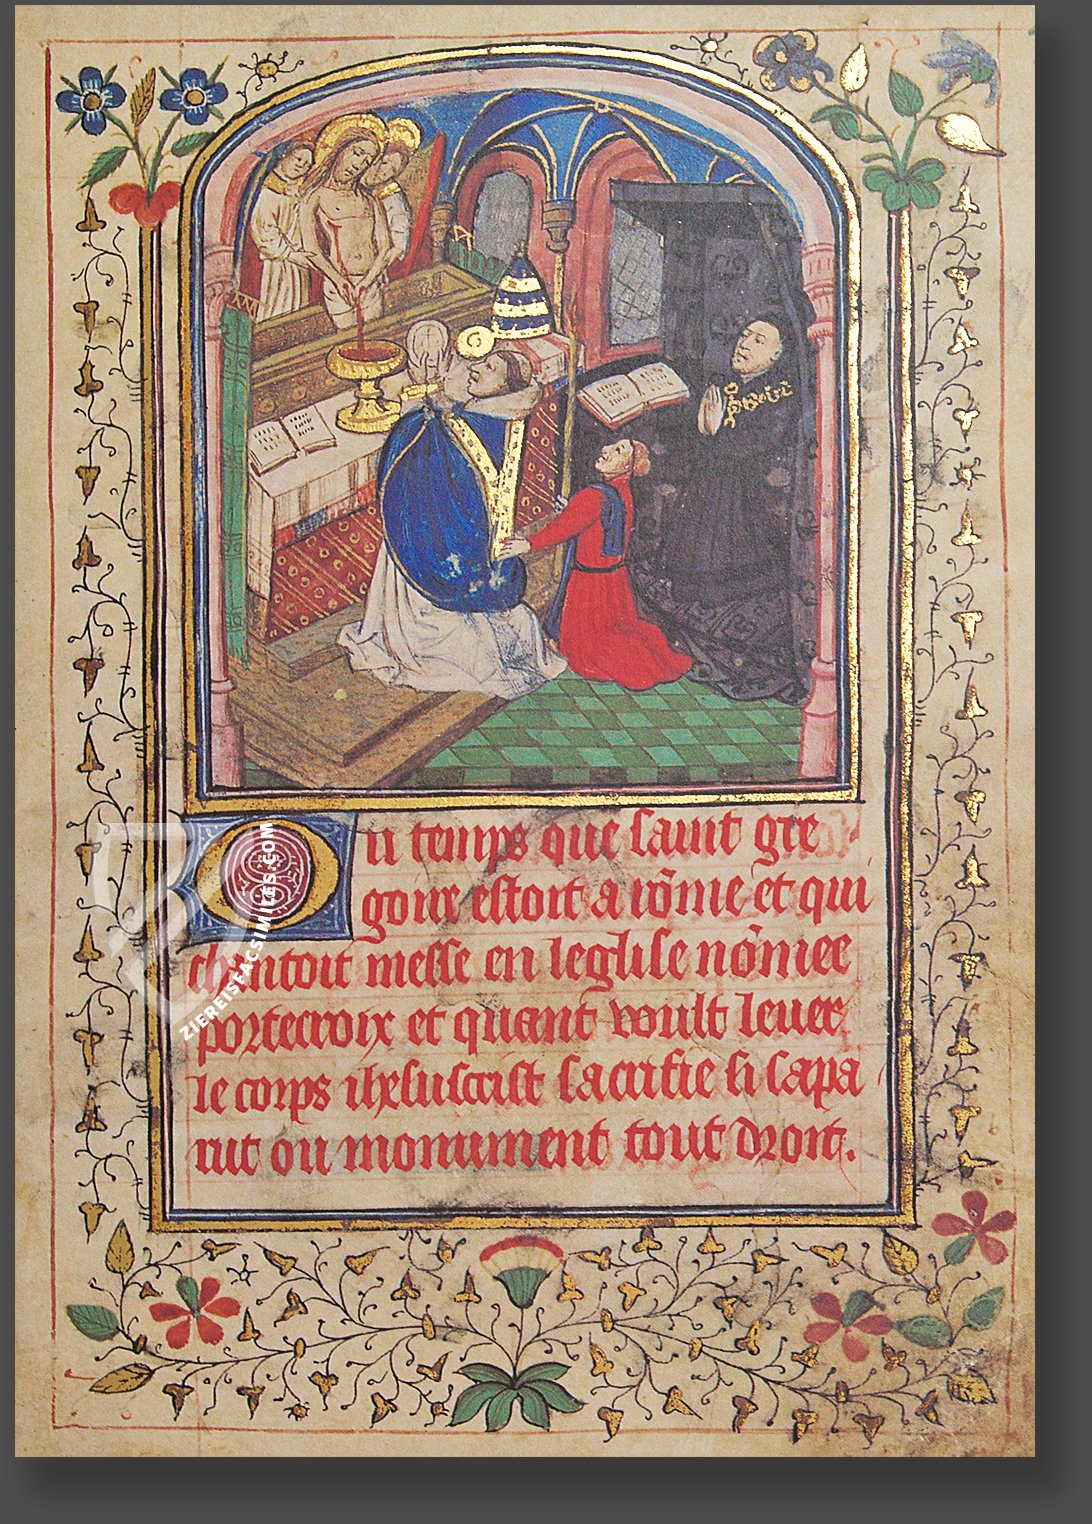 Du temps que saint gre
goire estoit a rõme et qui
chantoit messe en leglise nõmee
portecroix et quant voult leuer
le corps ihesuscrist sacrifie si sapa
rut ou monument tout droit.
ZIEREISFACSIMILES.COM